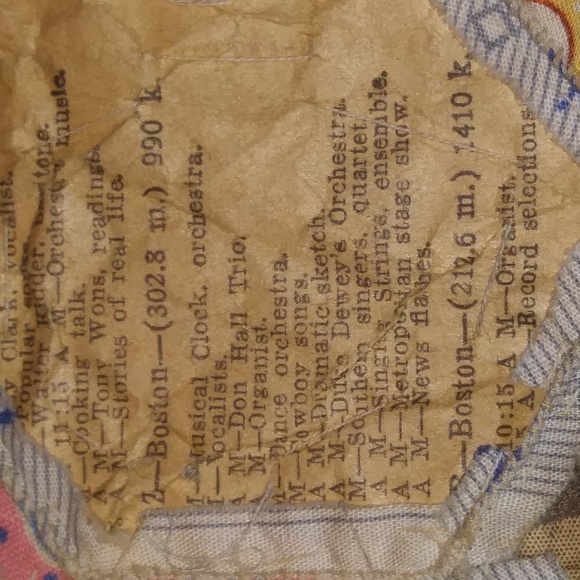 Clark, vocalist.
Popular songs
11:15 A M—Orchestral music.
—Cooking talk.
A M—Tony Wons, readings.
A M—Stories of real life.
Z—Boston—(302.8 m.) 990 k.
M—Musical Clock, orchestra.
—Vocalists.
A M—Don Hall Trio.
M—Organist.
—Dance orchestra.
M—Cowboy songs.
A M—Dramatic sketch.
A M—Duke Dewey's Orchestra.
M—Southern singers, quartet.
A M—Singing Strings, ensemble.
A M—Metropolitan stage show.
A M—News flashes.
—Boston—(212.6 m.) 1410 k.
10:15 A M—Organist.
A —Record selections